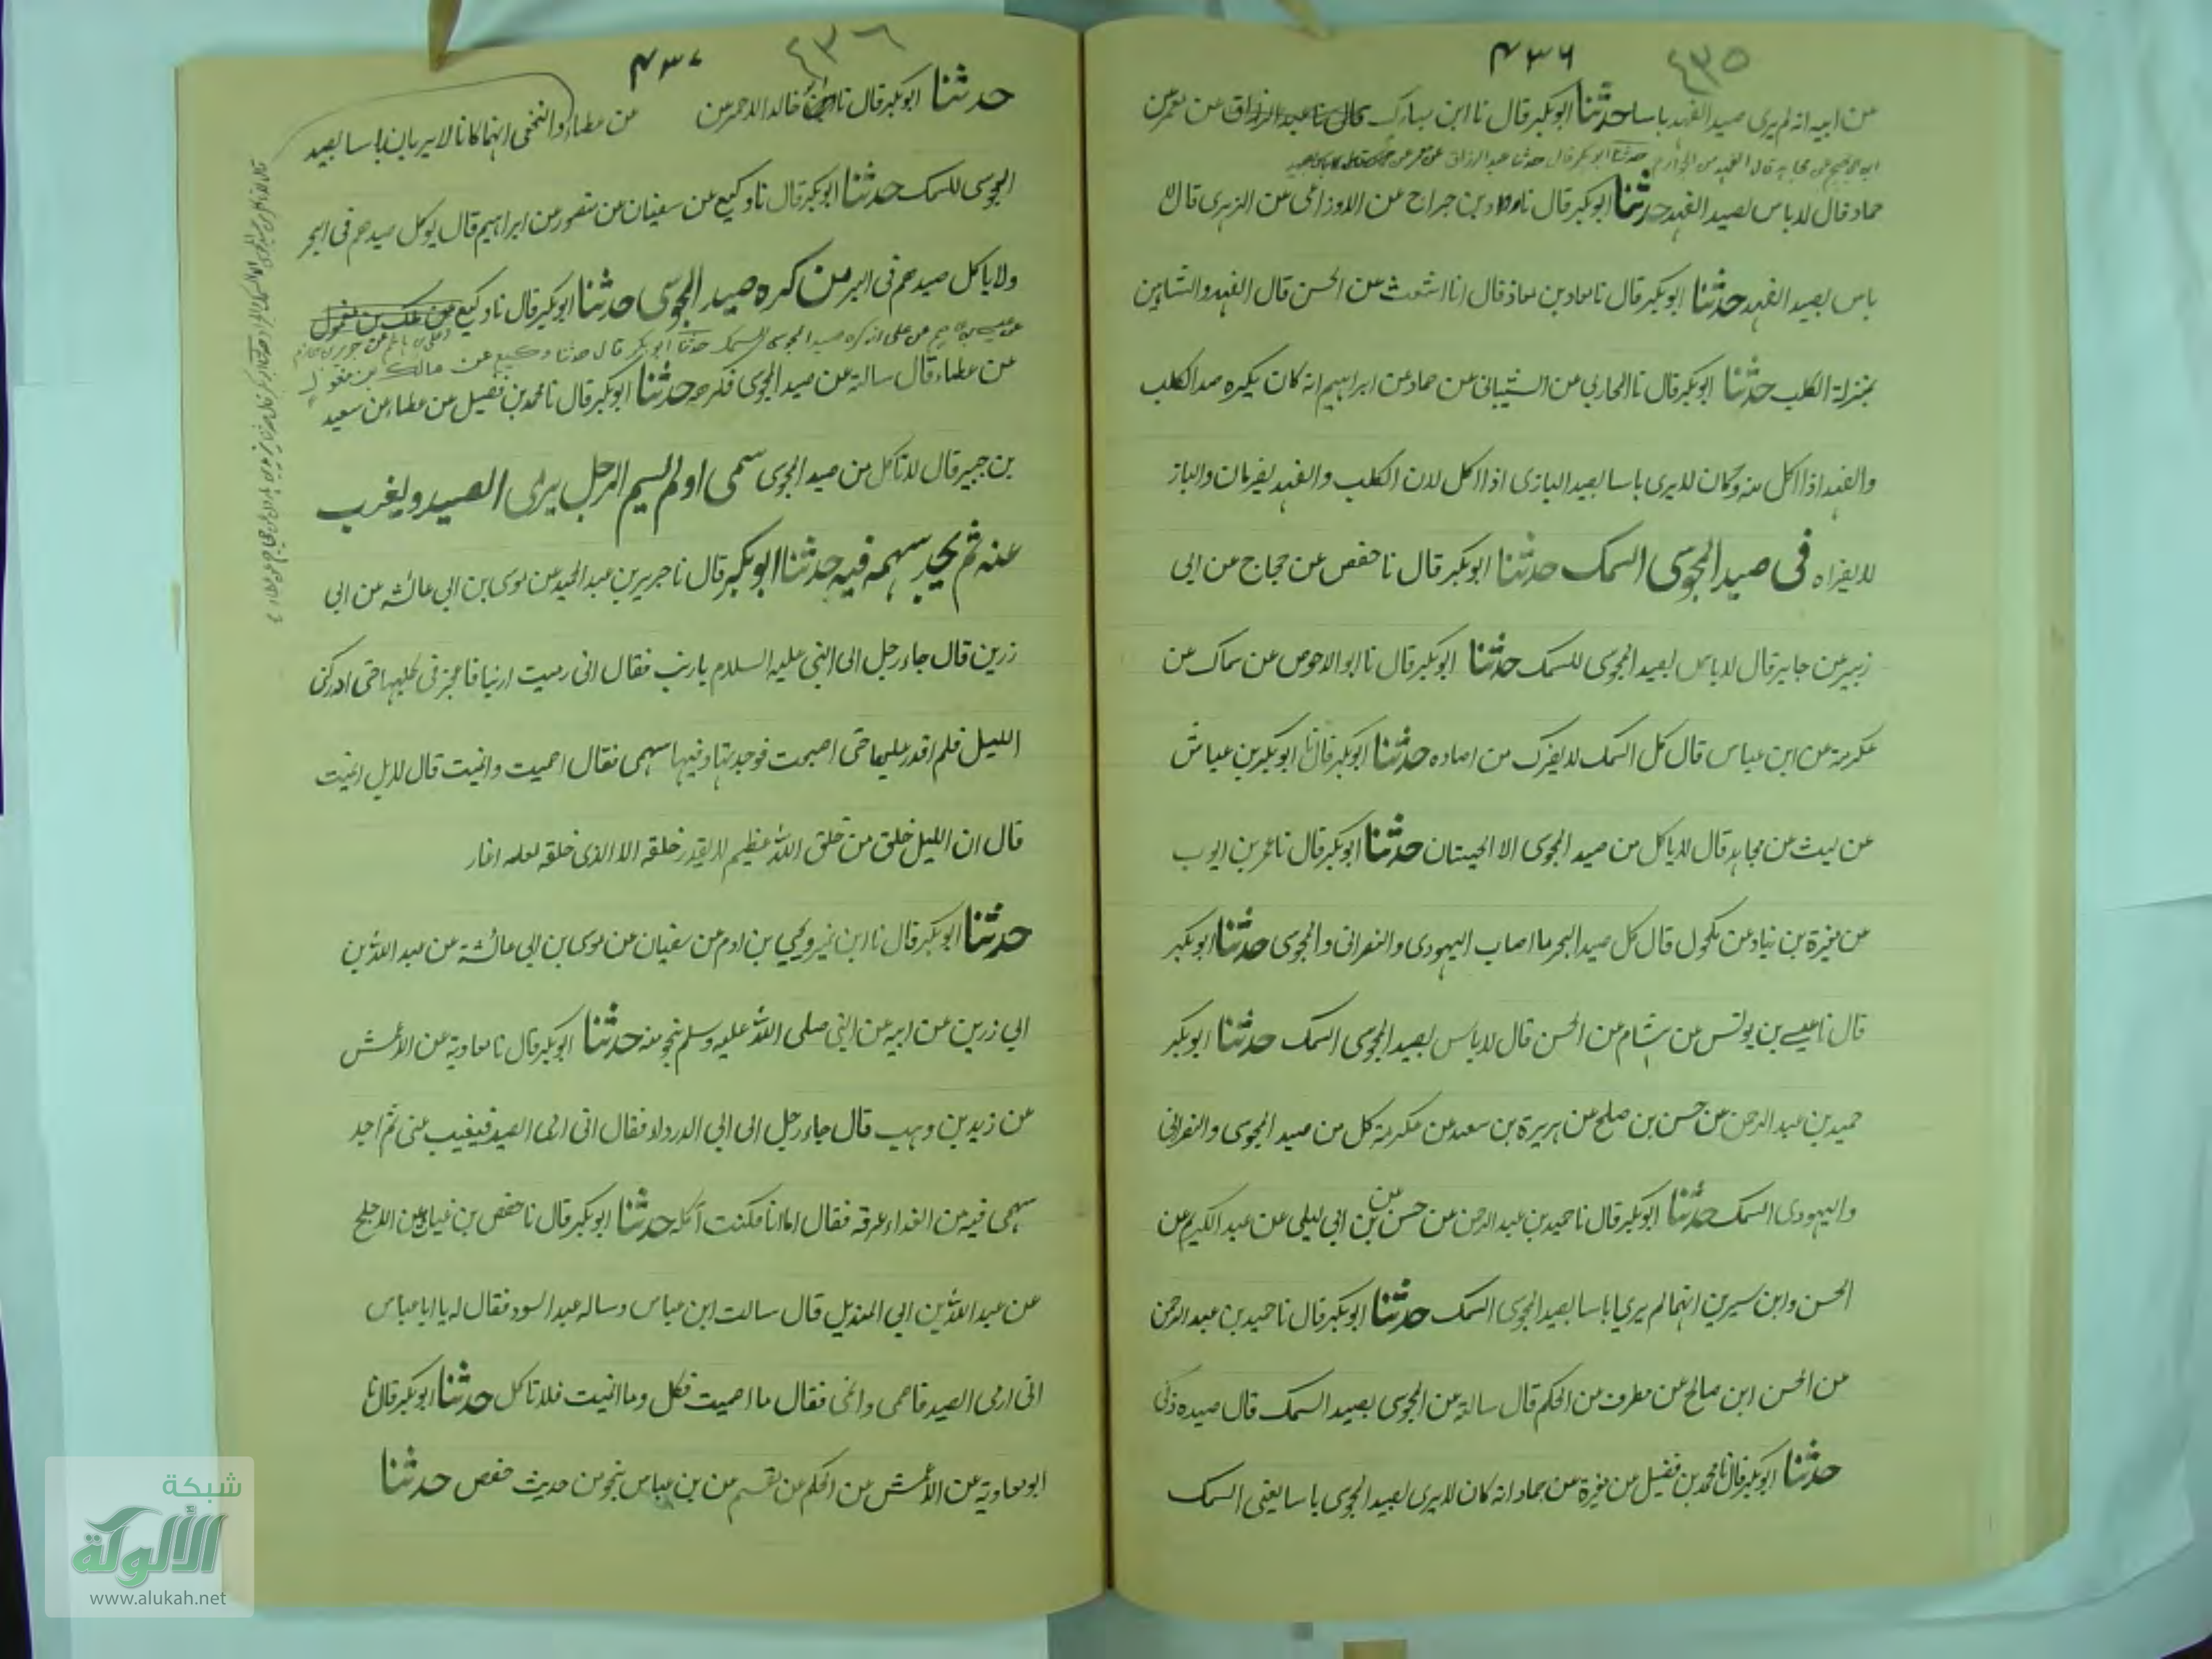 ٤٣٥
٤٣٦
عن ابيه انه لم يرى صيد الفهد باسا حدثنا ابوبكر قال نا ابن مبارك قال نا عبد الرزاق عن معمر عن
ابن ابي نجيح عن مجاهد قال الفهد من الجوارح حدثنا ابوبكر قال حدثنا عبد الرزاق عن معمر عن
حماد قال لا باس لصيد الفهد حدثنا ابوبكر قال نا رواد بن جراح عن الاوزاعى عن الزهرى قال لا
باس بصيد الفهد حدثنا ابوبكر قال نا معاذ بن معاذ قال انا اشعث عن الحسن قال الفهد والشاهين
بمنزلة الكلب حدثنا ابوبكر قال نا المحاربى عن الشيبانى عن حماد عن ابراهيم انه كان يكره صيد الكلب
والفهد اذا اكل منه وكان لا يرى باسا بصيد البازى اذا اكل لان الكلب والفهد يضريان والباز
لا يضراه فى صيد المجوسى السمك حدثنا ابوبكر قال نا حفص عن حجاج عن ابى
زبير عن جابر قال لا باس بصيد المجوسى للسمك حدثنا ابوبكر قال نا ابو الاحوص عن سماك عن
عكرمة عن ابن عباس قال كل السمك لا يضرك من اصاده حدثنا ابوبكر قال نا ابوبكر بن عياش
عن ليث عن مجاهد قال لا ياكل من صيد المجوسى الا الحيتان حدثنا ابوبكر قال نا عمر بن ايوب
عن مغيرة بن زياد عن مكحول قال كل صيد البحر ما اصاب اليهودى والنصرانى والمجوسى حدثنا ابوبكر
قال نا عيسى بن يونس عن هشام عن الحسن قال لا باس بصيد المجوسى السمك حدثنا ابوبكر
حميد بن عبد الرحمن عن حسن بن صلح عن هريرة بن سعد عن عكرمة كل من صيد المجوسى والنصرانى
واليهودى السمك حدثنا ابوبكر قال نا حميد بن عبد الرحمن عن حسن عن بن ابى ليلى عن عبد الكريم عن
الحسن وابن سيرين انهما لم يريا باسا بصيد المجوسى السمك حدثنا ابوبكر قال نا حميد بن عبد الرحمن
عن الحسن ابن صالح عن مطرف عن الحكم قال سالته عن المجوسى بصيد السمك قال صيده ذكى
حدثنا ابوبكر قال نا محمد بن فضيل عن مغيرة عن حماد انه كان لا يرى بصيد المجوسى باسا يعنى السمك
٤٣٦
٤٣٧
حدثنا ابوبكر قال نا ابو خالد الاحمر عن عن عطاء والنخعى انهما كانا لا يريان باسا بصيد
المجوسى للسمك حدثنا ابوبكر قال نا وكيع عن سفيان عن منصور عن ابراهيم قال يوكل صيدهم فى البحر
ولا ياكل صيدهم فى البر من كره صيد المجوسى حدثنا ابوبكر قال نا وكيع عن ملك بن مغول
عن على انه كره صيد المجوسى السمك حدثنا ابوبكر قال حدثنا وكيع عن مالك بن مغول
عن عطاء قال سالته عن صيد المجوسى فكرهه حدثنا ابوبكر قال نا محمد بن فضيل عن عطاء عن سعيد
بن جبير قال لا تاكل من صيد المجوسى سمى او لم يسم الرجل يرمى الصيد ويغرب
عنه ثم يجد سهمه فيه حدثنا ابوبكر قال نا جرير بن عبد الحميد عن موسى بن ابى عائشه عن ابى
زرين قال جاء رجل الى النبى عليه السلام بارنب فقال انى رميت ارنبا فاعجزنى طلبها حتى ادركنى
الليل فلم اقدر عليها حتى اصبحت فوجدتها وفيها سهمى فقال اصميت وانميت قال لا بل انميت
قال ان الليل خلق من خلق الله عظيم لا يقدر خلقه الا الذى خلقه لعله اغار
حدثنا ابوبكر قال نا ابن نمير ويحيى بن ادم عن سفيان عن موسى بن ابى عائشة عن عبد الله بن
ابى زرين عن ابيه عن النبى صلى الله عليه وسلم بنحو منه حدثنا ابوبكر قال نا معاوية عن الاعمش
عن زيد بن وهب قال جاء رجل الى ابى الدرداء فقال انى ارمى الصيد فيغيب عنى ثم اجد
سهمى فيه من الغداء عرفه فقال اما انا فكنت آكله حدثنا ابوبكر قال نا حفص بن غياث عن الاجلح
عن عبد الله بن ابى الهذيل قال سالت ابن عباس وساله عبد اسود فقال له يا ابا عباس
انى ارمى الصيد فاصمى وانمى فقال ما اصميت فكل وما انميت فلا تاكل حدثنا ابوبكر قال نا
ابو معاوية عن الاعمش عن الحكم عن مقسم عن بن عباس بنحو من حديث حفص حدثنا
شبكة
الألوكة
www.alukah.net